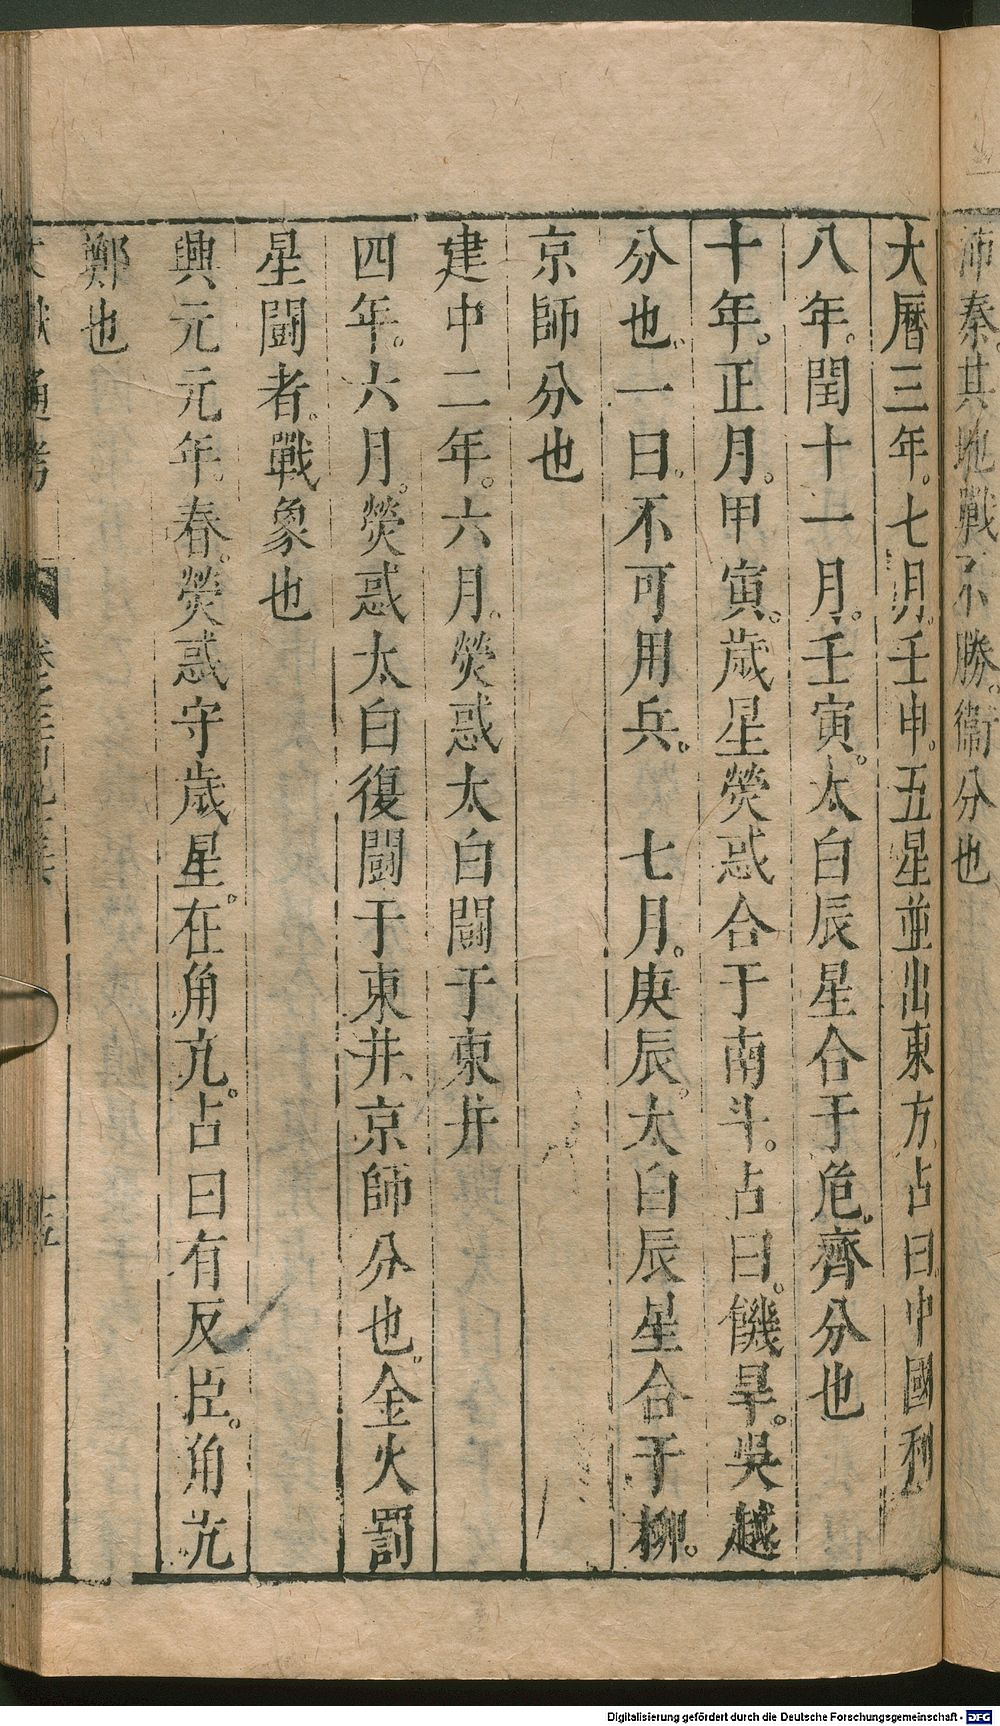 沛秦其地戰不勝。衞分也
大曆三年。七月。壬申。五星並出東方占曰。中國利
八年。閏十一月。壬寅。太白辰星合于危。齊分也
十年。正月。甲寅。歲星熒惑合于南斗。占曰。饑旱。吳越
分也。一曰。不可用兵。　七月。庚辰。太白辰星合于柳。
京師分也
建中二年。六月。熒惑太白鬭于東井
四年。六月。熒惑太白復鬭于東井、京師分也。金火罰
星鬭者。戰象也
興元元年。春。熒惑守歲星。在角亢。占曰有反臣。角亢
鄭也
通考
Digitalisierung gefördert durch die Deutsche Forschungsgemeinschaft - DFG